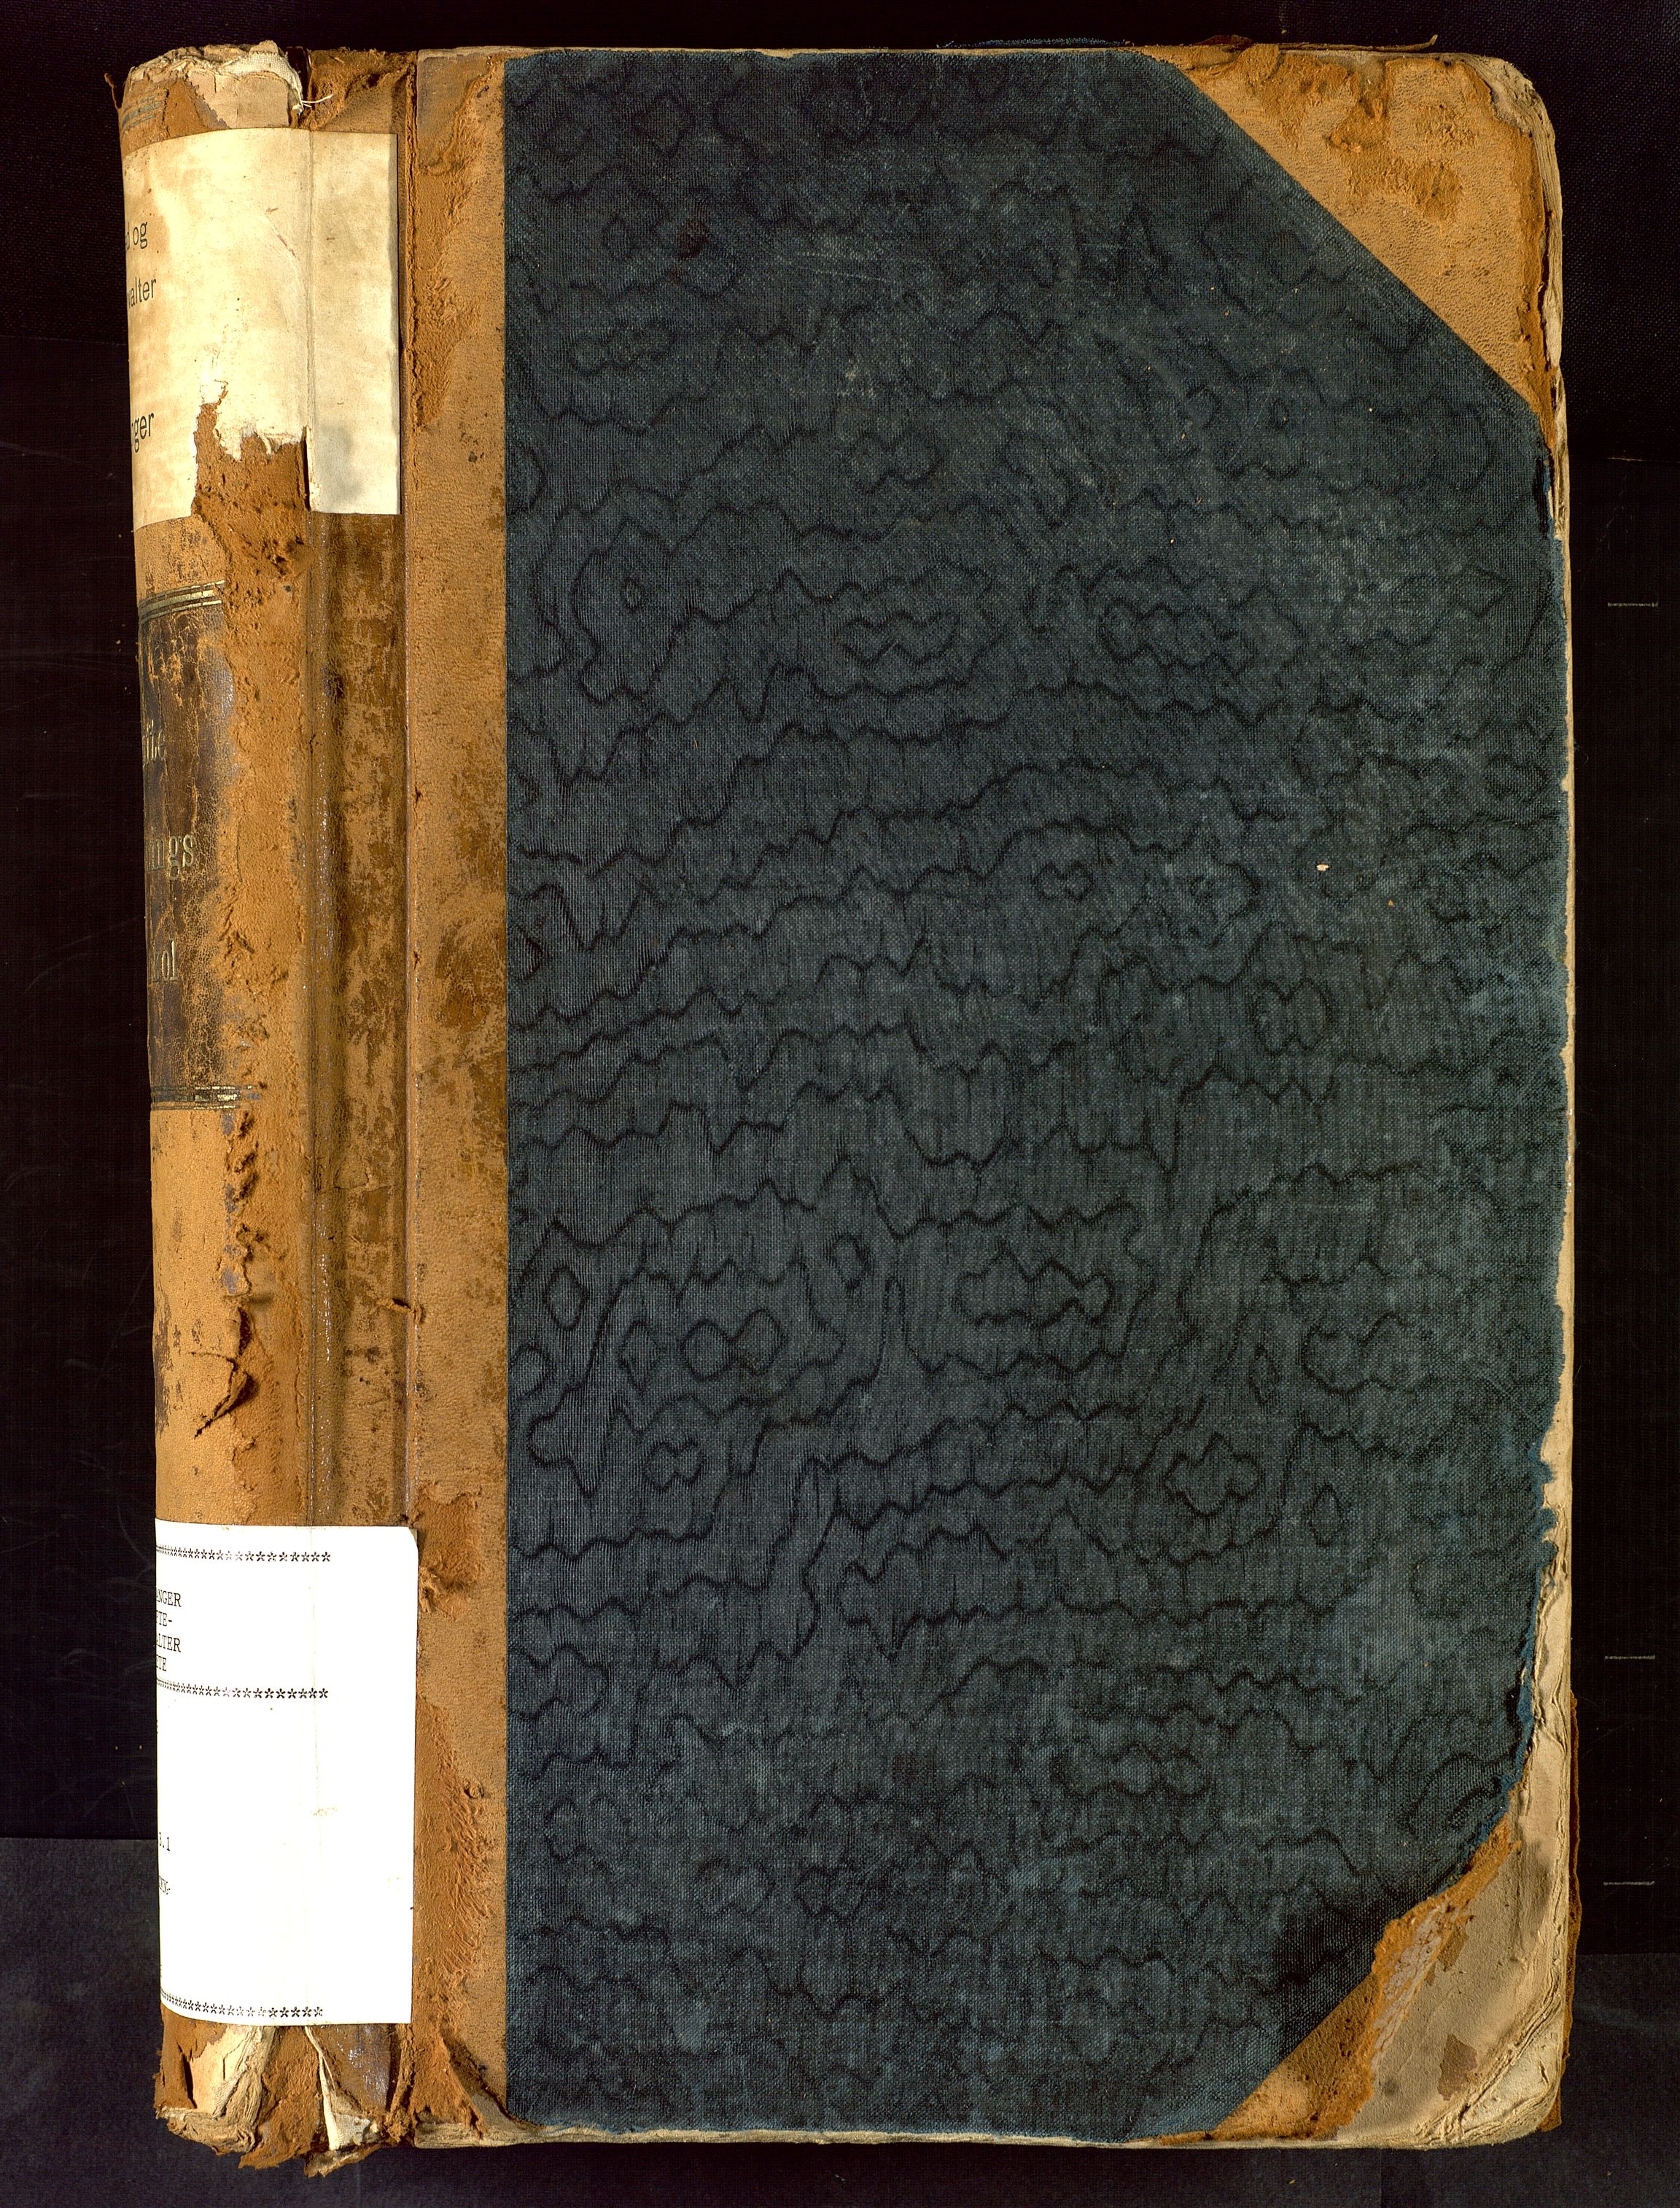 d og
valter
ger
ings
ol
************************
ANGER
TE-
ALTER
TE
************************
3.1
************************